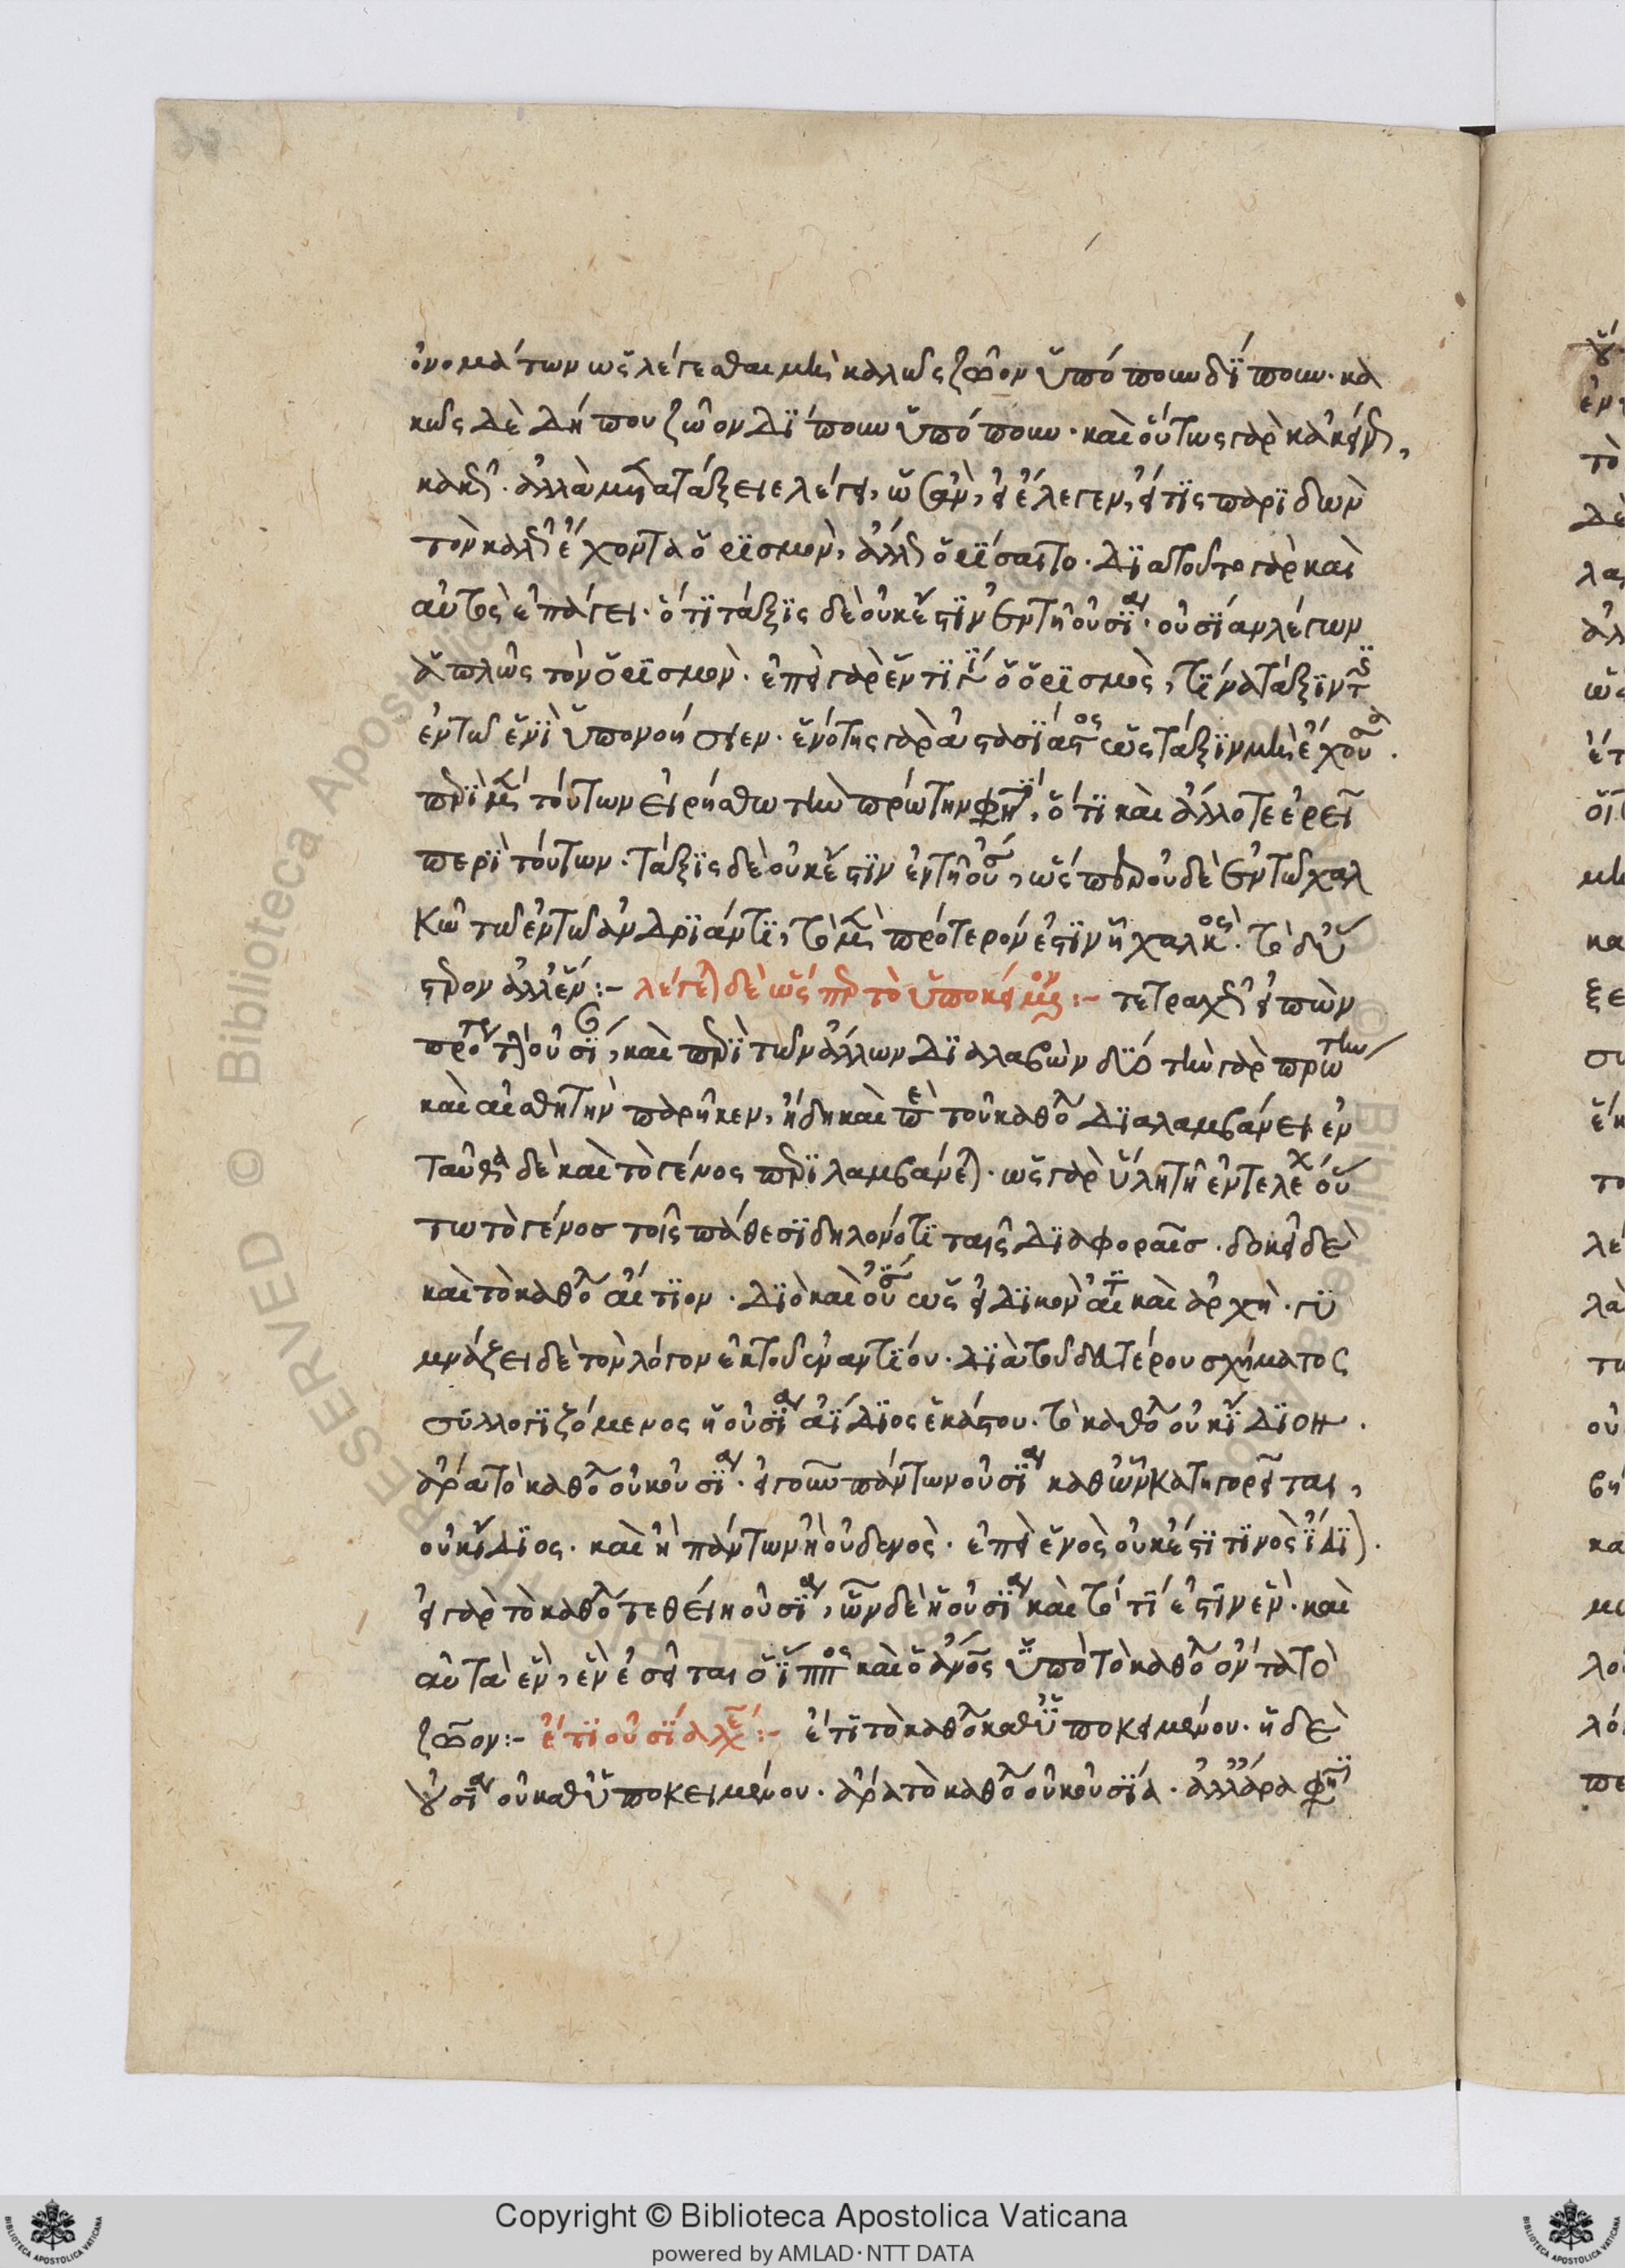 ὀνομάτων ὡς λέγεσθαι μὴν καλῶς ζῶον ὑπόπουν δίπουν· κα
κῶς δὲ δήπου ζῶον δίπουν ὑπόπουν· καὶ οὕτως γὰρ κἀκεῖν
τὸν καλῶς ἔχοντα ὁρισμὸν, ἀλλ' ὁρίσαιτο· διατοῦτο γὰρ καὶ
αὐτὸς ἐπάγει· ὅτι τάξις δὲ οὐκ ἔστιν ἐν τῆ οὐσία· οὐσίαν λέγων
ἁπλῶς τὸν ὁρισμὸν· ἐπεὶ γὰρ ἕν τί ἐστι ὁ ὁρισμὸς, τίνα τάξιν τις
ἐν τῶ ἑνὶ ὑπονοήσειεν· ἑνότης γὰρ ἀστασίαστος ὡς τάξιν μὴ ἔχουσα·
περὶ μὲν τούτων εἰρήσθω τὴν πρώτην φησὶ, ὅτι καὶ ἄλλοτε ἐρεῖ
περὶ τούτων· τάξις δὲ οὐκ ἔστιν ἐν τῆ οὐσία, ὥσπερ οὐδὲ ἐν τῶ χαλ
κῶ τῶ ἐν τῶ ἀνδριάντι, τὸ μὲν πρότερόν ἐστιν ἢ χαλκὸς· τὸ δ' ὕ
στερον ἀλλ' ἕν:- λέγεται δὲ ὥσπερ τὸ ὑποκείμενον:- τετραχῶς εἰπὼν
πρότερον τὴν οὐσίαν, καὶ περὶ τῶν ἄλλων διαλαβὼν δύο τὴν γὰρ πρώτην
καὶ αἰσθητὴν παρῆκεν, ἤδη καὶ περὶ τοῦ καθόλου διαλαμβάνει ἐν
ταῦθα δὲ καὶ τὸ γένος περιλαμβάνεται· ὡς γὰρ ὕλη τῆ ἐντελεχεία οὕ
τω τὸ γένοσ τοῖς πάθεσι δηλονότι ταῖς διαφοραῖσ· δοκεῖ δὲ
καὶ τὸ καθόλου αἴτιον· διὸ καὶ οὐσία ὡς εἰδικὸν αἴτιον καὶ ἀρχὴ· γυ
μνάζει δὲ τὸν λόγον ἐκ τοῦ ἐναντίου· διὰ τοῦ δευτέρου σχήματος
συλλογιζόμενος ἡ οὐσία ἀίδιος ἑκάστου· τὸ καθόλου οὐκ ἴδιον·
ἄρα τὸ καθόλου οὐκ οὐσία· εἰ γοῦν πάντων οὐσία καθ' ὧν κατηγορεῖται,
οὐκ ἴδιος· καὶ ἢ πάντων ἢ οὐδενὸς· ἐπεὶ ἑνὸς οὐκ ἔστι τινὸς ἴδιον·
εἰ γὰρ τὸ καθόλου τεθείη οὐσία, ὧν δὲ ἡ οὐσία καὶ τὸ τί ἐστιν ἓν· καὶ
αὐτὰ ἓν, ἓν ἐσεῖται ὁ ἵππος καὶ ὁ ἄνθρωπος ὑπὸ τὸ καθόλου ὄντα τὸ
ζῶον:- ἔτι οὐσία λέγεται:- ἔτι τὸ καθόλου καθ' ὑποκειμένου· ἡ δὲ
οὐσία οὐ καθ' ὑποκειμένου· ἄρα τὸ καθόλου οὐκ οὐσία· ἀλλ' ἄρα φησὶ
Copyright © Biblioteca Apostolica Vaticana
powered by AMLAD · NTT DATA